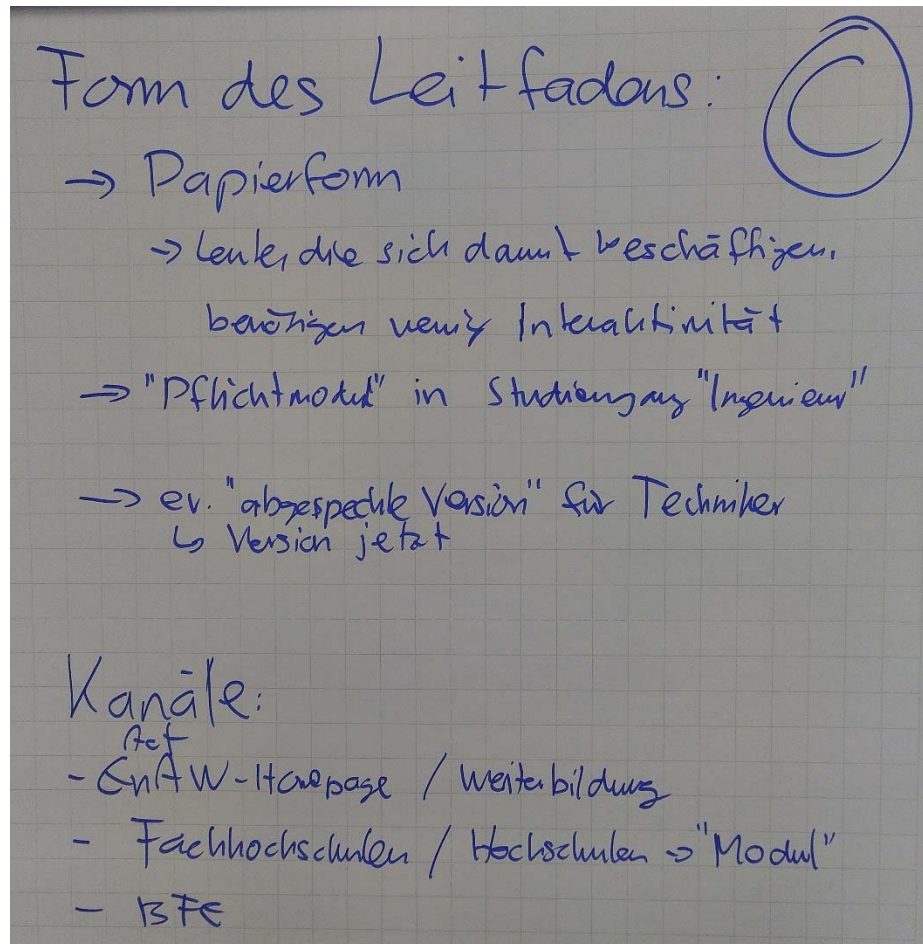 Form des Leitfadens:
C
→ Papierform
→ Leute, die sich damit beschäftigen,
benötigen wenig Interaktivität
→ "Pflichtmodul" in Studiengang "Ingenieur"
→ ev. "abgespeckte Version" für Techniker
↳ Version jetzt
Kanäle:
Act
- EnAW-Homepage / Weiterbildung
- Fachhochschulen / Hochschulen → "Modul"
- BFE